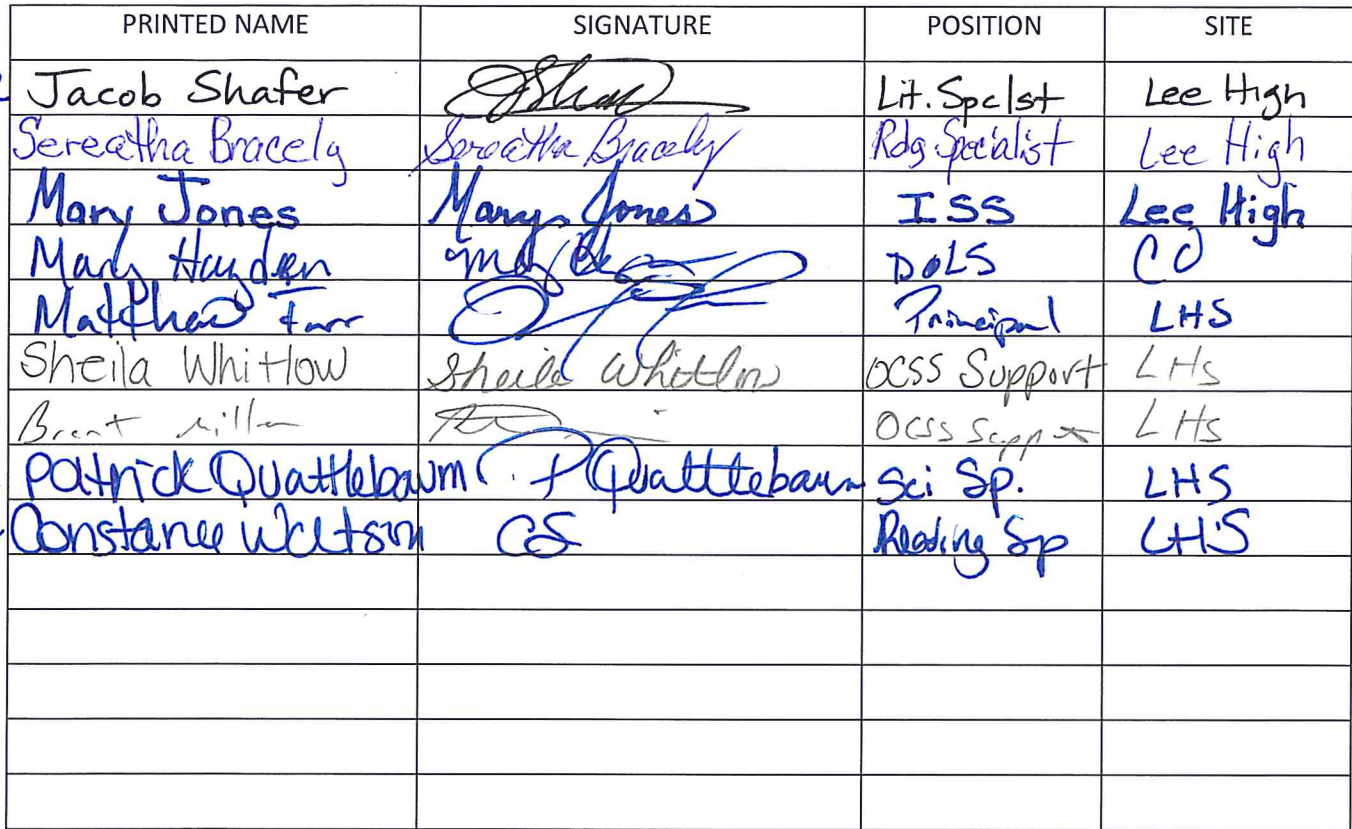 PRINTED NAME SIGNATURE POSITION SITE
Jacob Shafer JShaf Lit. Spclst Lee High
Sereatha Bracely Sereatha Bracely Rdg Specialist Lee High
Mary Jones Mary Jones ISS Lee High
Mary Hayden DOLS CO
Matthew Farr Principal LHS
Sheila Whitlow Sheila Whitlow OCSS Support LHS
Brent Miller OCSS Support LHS
Patrick Quattlebaum P Quatttebaum Sci Sp. LHS
Constance Watson CS Reading Sp LHS